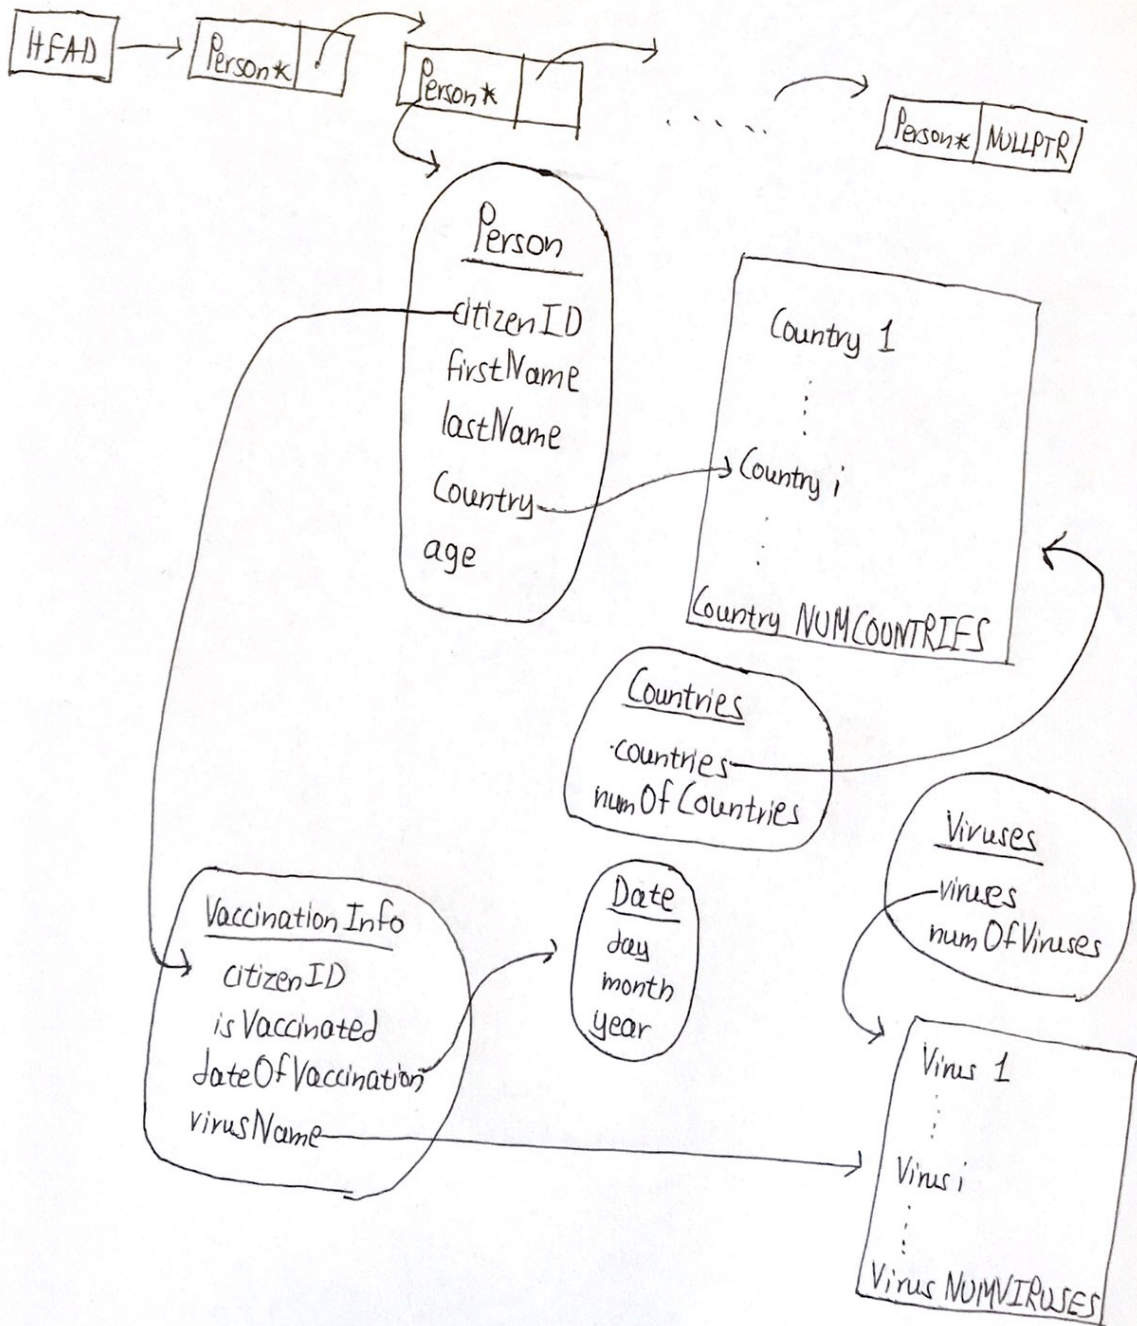 HEAD
Person*
Person*
Person* NULLPTR
Person
citizenID
firstName
lastName
Country
age
Country 1
Country i
Country NUMCOUNTRIES
Countries
countries
numOfCountries
Viruses
viruses
numOfViruses
Vaccination Info
citizenID
isVaccinated
dateOfVaccination
virusName
Date
day
month
year
Virus 1
Virus i
Virus NUMVIRUSES